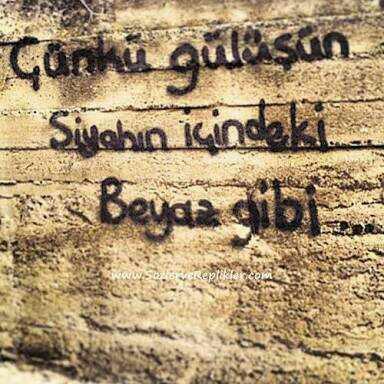 Çünkü gülüşün
Siyahın içindeki
Beyaz gibi....
www.SozlerveReplikler.com